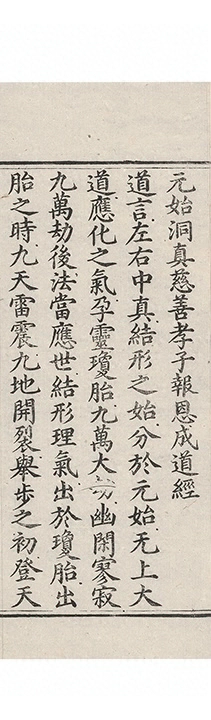 元始洞真慈善孝子報恩成道經
道言左右中真結形之始分於元始无上大
道應化之氣孕靈瓊胎九萬大劫幽閑寥寂
九萬劫後法當應世結形理氣出於瓊胎出
胎之時九天雷震九地開裂舉步之初登天